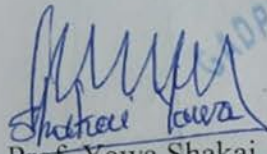 Shakai Yawa
Prof. Yawa Shakai